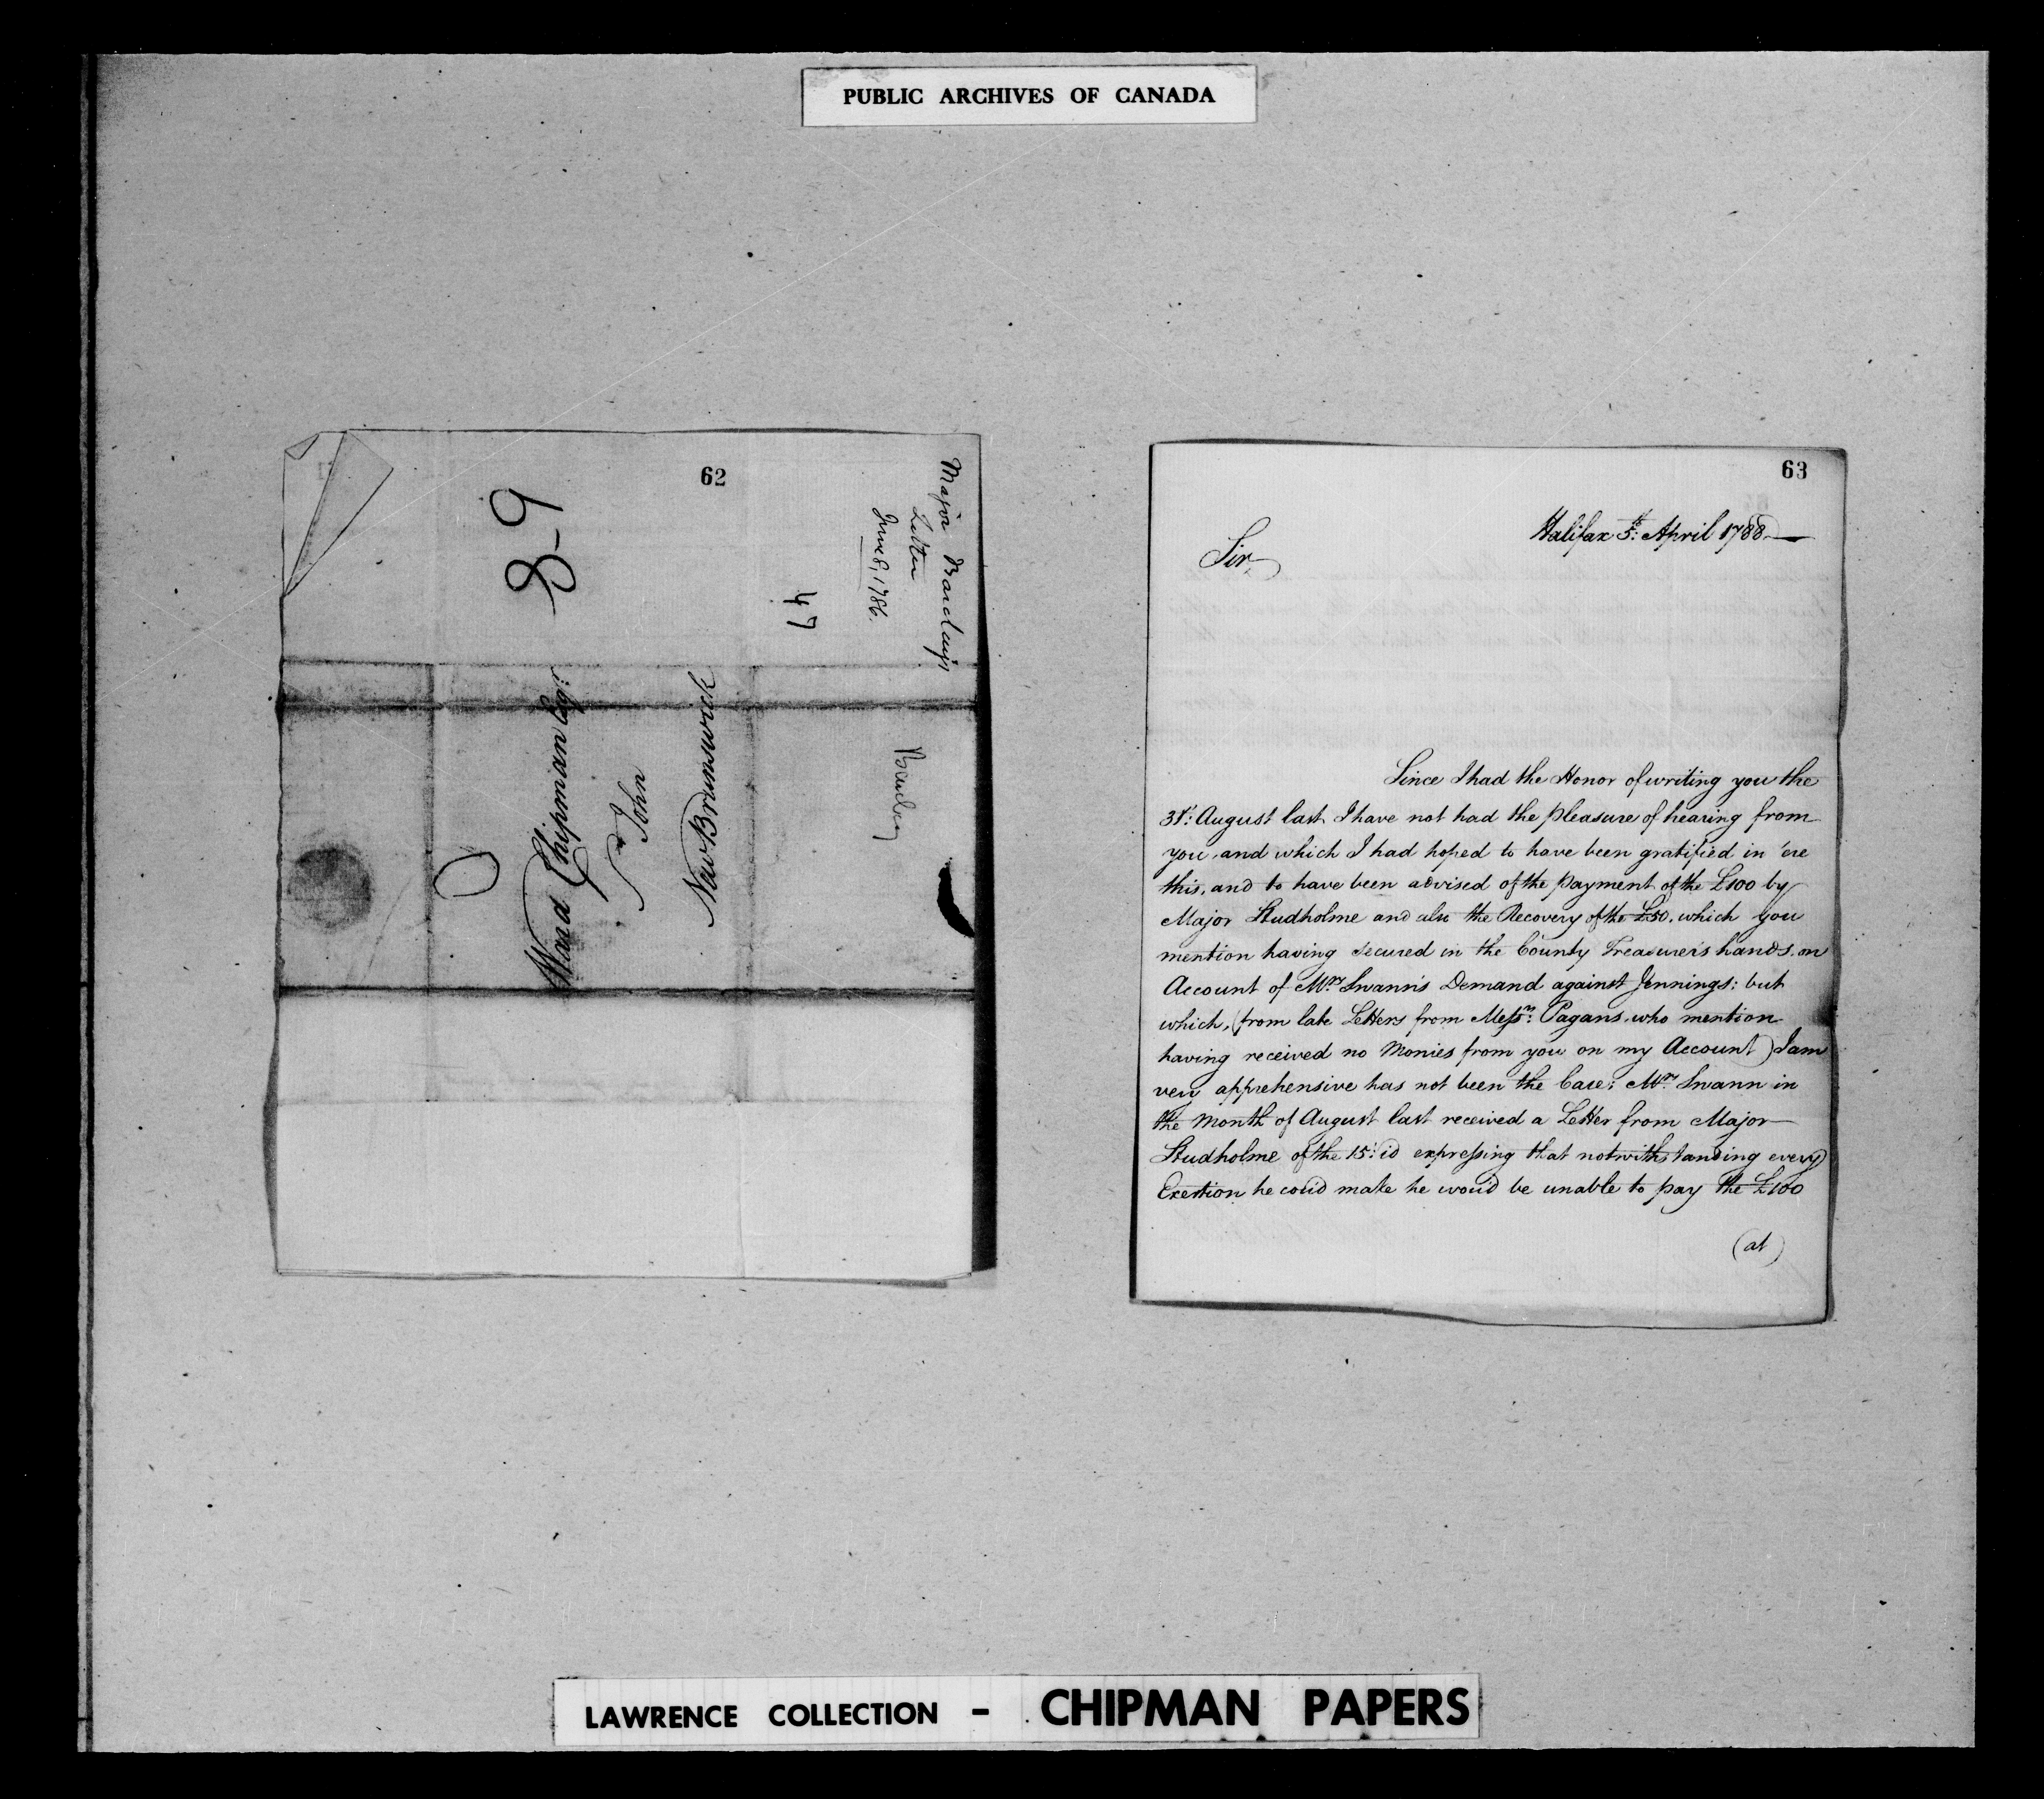 PUBLIC ARCHIVES OF CANADA
62
Major Barclays
Letter
June 8, 1786.
47
8-9
Ward Chipman Esqr.
St John
New Brunswick
63
Halifax 5th: April 1788
Sir
Since I had the Honor of writing you the
31t: August last I have not had the pleasure of hearing from
you, and which I had hoped to have been gratified in 'ere
this, and to have been advised of the payment of the £100 by
Major Studholme and also the Recovery of the £50, which you
mention having secured in the County Treasurer's hands, on
Account of Mrs Swann's Demand against Jennings: but
which, (from late Letters from Messrs: Pagans, who mention
having received no Monies from you on my Account) I am
very apprehensive has not been the Case: Mrs Swann in
the Month of August last received a Letter from Major
Studholme of the 15t: id expressing that notwithstanding every
Exertion he cou'd make he wou'd be unable to pay the £100
(at)
LAWRENCE COLLECTION - CHIPMAN PAPERS